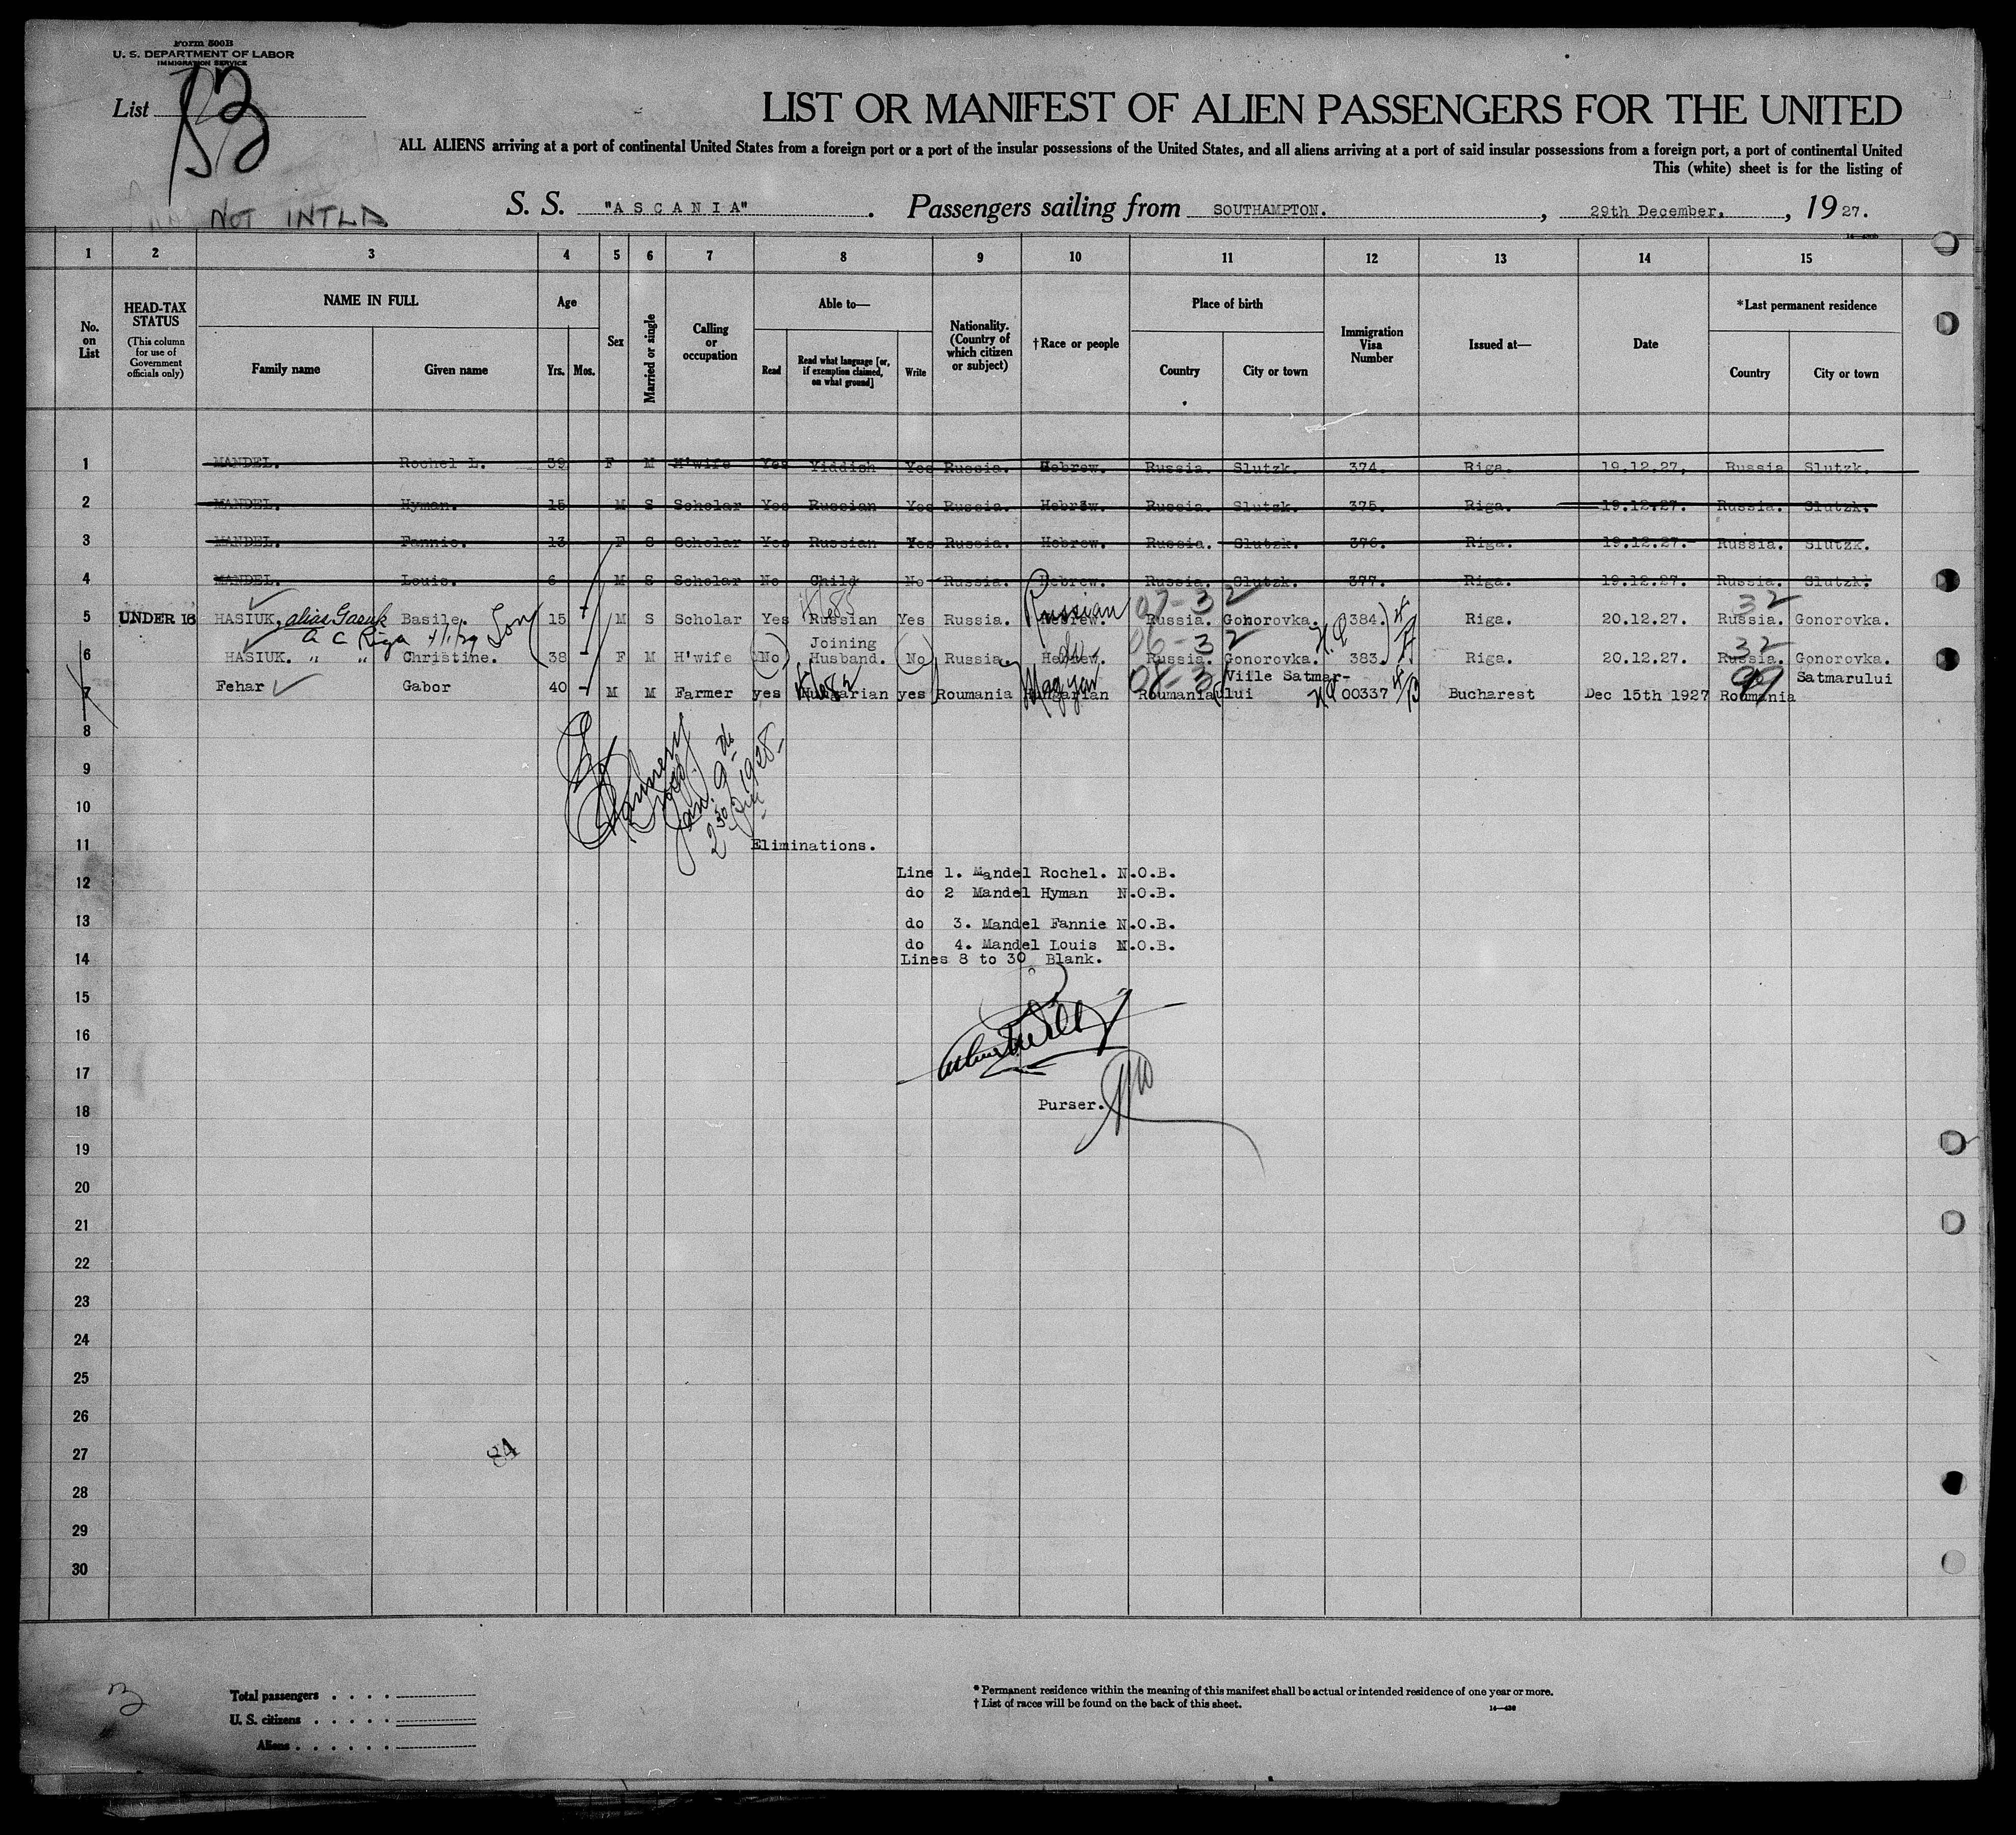 Form 500B
U. S. DEPARTMENT OF LABOR
IMMIGRATION SERVICE
List
LIST OR MANIFEST OF ALIEN PASSENGERS FOR THE UNITED
ALL ALIENS arriving at a port of continental United States from a foreign port or a port of the insular possessions of the United States, and all aliens arriving at a port of said insular possessions from a foreign port, a port of continental United
This (white) sheet is for the listing of
NOT INTLD
S. S. "ASCANIA". Passengers sailing from SOUTHAMPTON., 29th December., 1927.
1 2 3 4 5 6 7 8 9 10 11 12 13 14 15
No. on List
HEAD-TAX STATUS
(This column for use of Government officials only)
NAME IN FULL
Family name Given name
Age
Yrs. Mos.
Sex
Married or single
Calling or occupation
Able to—
Read
Read what language [or, if exemption claimed, on what ground]
Write
Nationality. (Country of which citizen or subject)
†Race or people
Place of birth
Country City or town
Immigration Visa Number
Issued at—
Date
*Last permanent residence
Country City or town
1 MANDEL. Rochel L. 39 F M H'wife Yes Yiddish Yes Russia. Hebrew. Russia. Slutzk. 374. Riga. 19.12.27. Russia Slutzk.
2 MANDEL. Hyman. 15 M S Scholar Yes Russian Yes Russia. Hebrew. Russia. Slutzk. 375. Riga. 19.12.27. Russia. Slutzk.
3 MANDEL. Fannie. 13 F S Scholar Yes Russian Yes Russia. Hebrew. Russia. Slutzk. 376. Riga. 19.12.27. Russia. Slutzk.
4 MANDEL. Louis. 6 M S Scholar No Child No Russia. Hebrew. Russia. Slutzk. 377. Riga. 19.12.27. Russia. Slutzk.
5 UNDER 16 HASIUK, alias Basile. Son 15 M S Scholar Yes Russian Yes Russia. Hebrew. Russian Russia. Gonorovka. 384. Riga. 20.12.27. Russia. Gonorovka.
07-32 32
a c Riga
6 HASIUK. " " Christine. 38 F M H'wife (No) Joining Husband. (No) Russia Hebrew. do Russia. Gonorovka. 383. Riga. 20.12.27. Russia. Gonorovka.
06-32 32
7 Fehar Gabor 40 M M Farmer yes Hungarian yes Roumania Hungarian Magyar Roumania Viile Satmar-ului 00337 Bucharest Dec 15th 1927 Roumania Satmarului
8
9
10
Jan. 9th 1928
2 30 PM
11 Eliminations.
Line 1. Mandel Rochel. N.O.B.
12 do 2 Mandel Hyman N.O.B.
13 do 3. Mandel Fannie N.O.B.
do 4. Mandel Louis N.O.B.
14 Lines 8 to 30 Blank.
15
16
17
18 Purser.
19
20
21
22
23
24
25
26
27 84
28
29
30
Total passengers
U. S. citizens
Aliens
* Permanent residence within the meaning of this manifest shall be actual or intended residence of one year or more.
† List of races will be found on the back of this sheet.
14—430